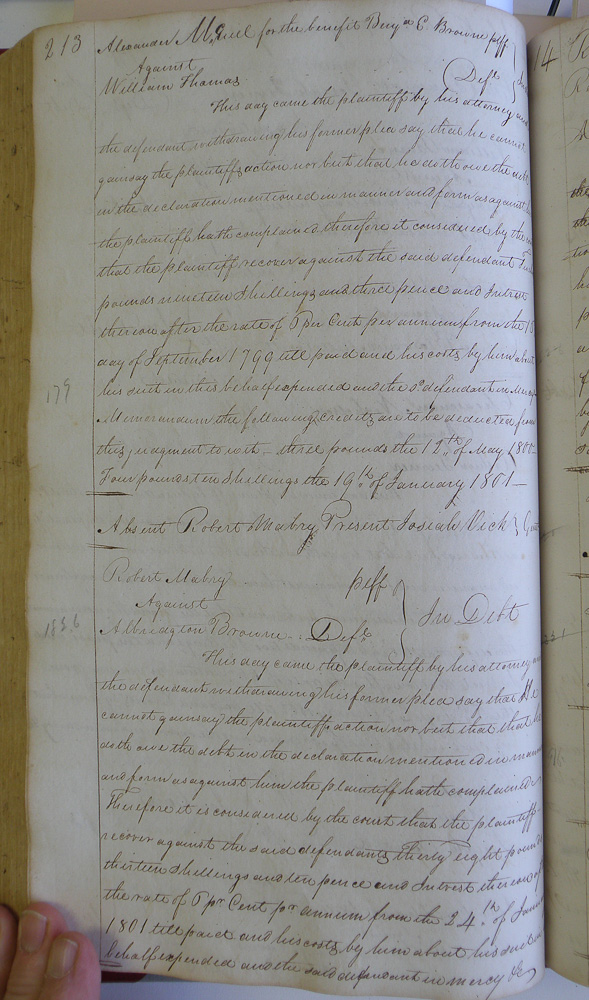 213 Alexander McNeil for the benefit Benja C. Browne plff
Against
William Thomas Deft
This day came the plaintiff by his attorney and
the defendant withdrawing his former plea say that he cannot
gainsay the plaintiffs action nor but that he doth owe the debt
in the declaration mentioned in manner and form as against
the plaintiff hath complained therefore it considered by the
that the plaintiff recover against the said defendant
pounds nineteen Shillings and three pence and Intrest
thereon after the rate of Pper Centr per annum from the
day of September 1799 till paid and his costs by him about
his suit in this behalf expended and the sd defendant in
179
Memorandum the following credits are to be deducted from
this judgment to wit three pounds the 19th of May 1800—
Four pounds ten Shillings the 19th of January 1801—
Absent Robert Mabry Present Josiah Vick
Robert Mabry plff
Against In Debt
Albridgton Browne Deft
This day came the plaintiff by his attorney
the defendant withdrawing his former plea say that He
cannot gainsay the plaintiffs action nor but that that he
doth owe the debt in the declaration mentioned in
and form as against him the plaintiff hath complained
Therefore it is considered by the court that the plaintiff
recover against the said defendants thirty eight
thirteen Shillings and ten pence and Intrest thereon
the rate of Ppr Cent pr annum from the 24th of
1801 till paid and his costs by him about his suit in
behalf expended and the said defendant in mercy &c
14